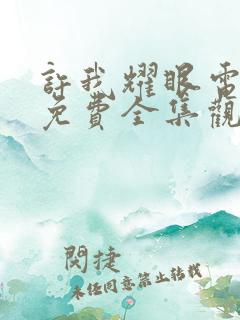 許我耀眼電
免費全集觀
閔捷
未經同意禁止轉載